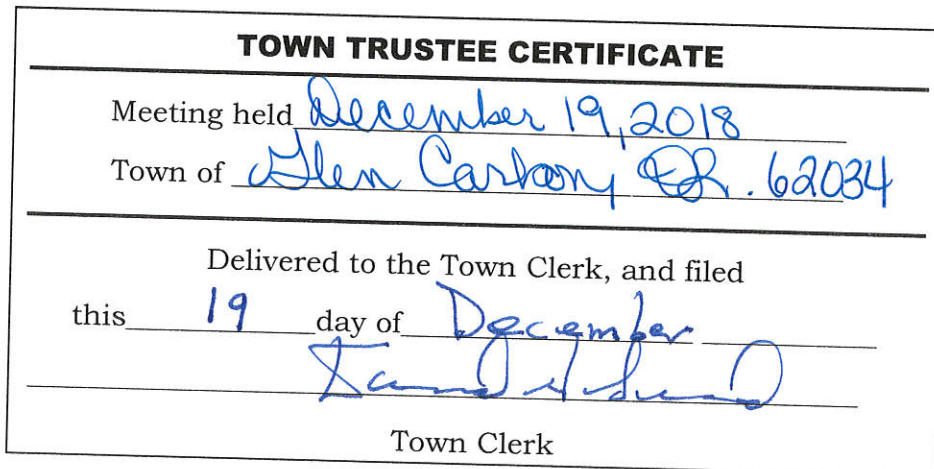 TOWN TRUSTEE CERTIFICATE
Meeting held December 19, 2018
Town of Glen Carbon, IL. 62034
Delivered to the Town Clerk, and filed
this 19 day of December
Town Clerk